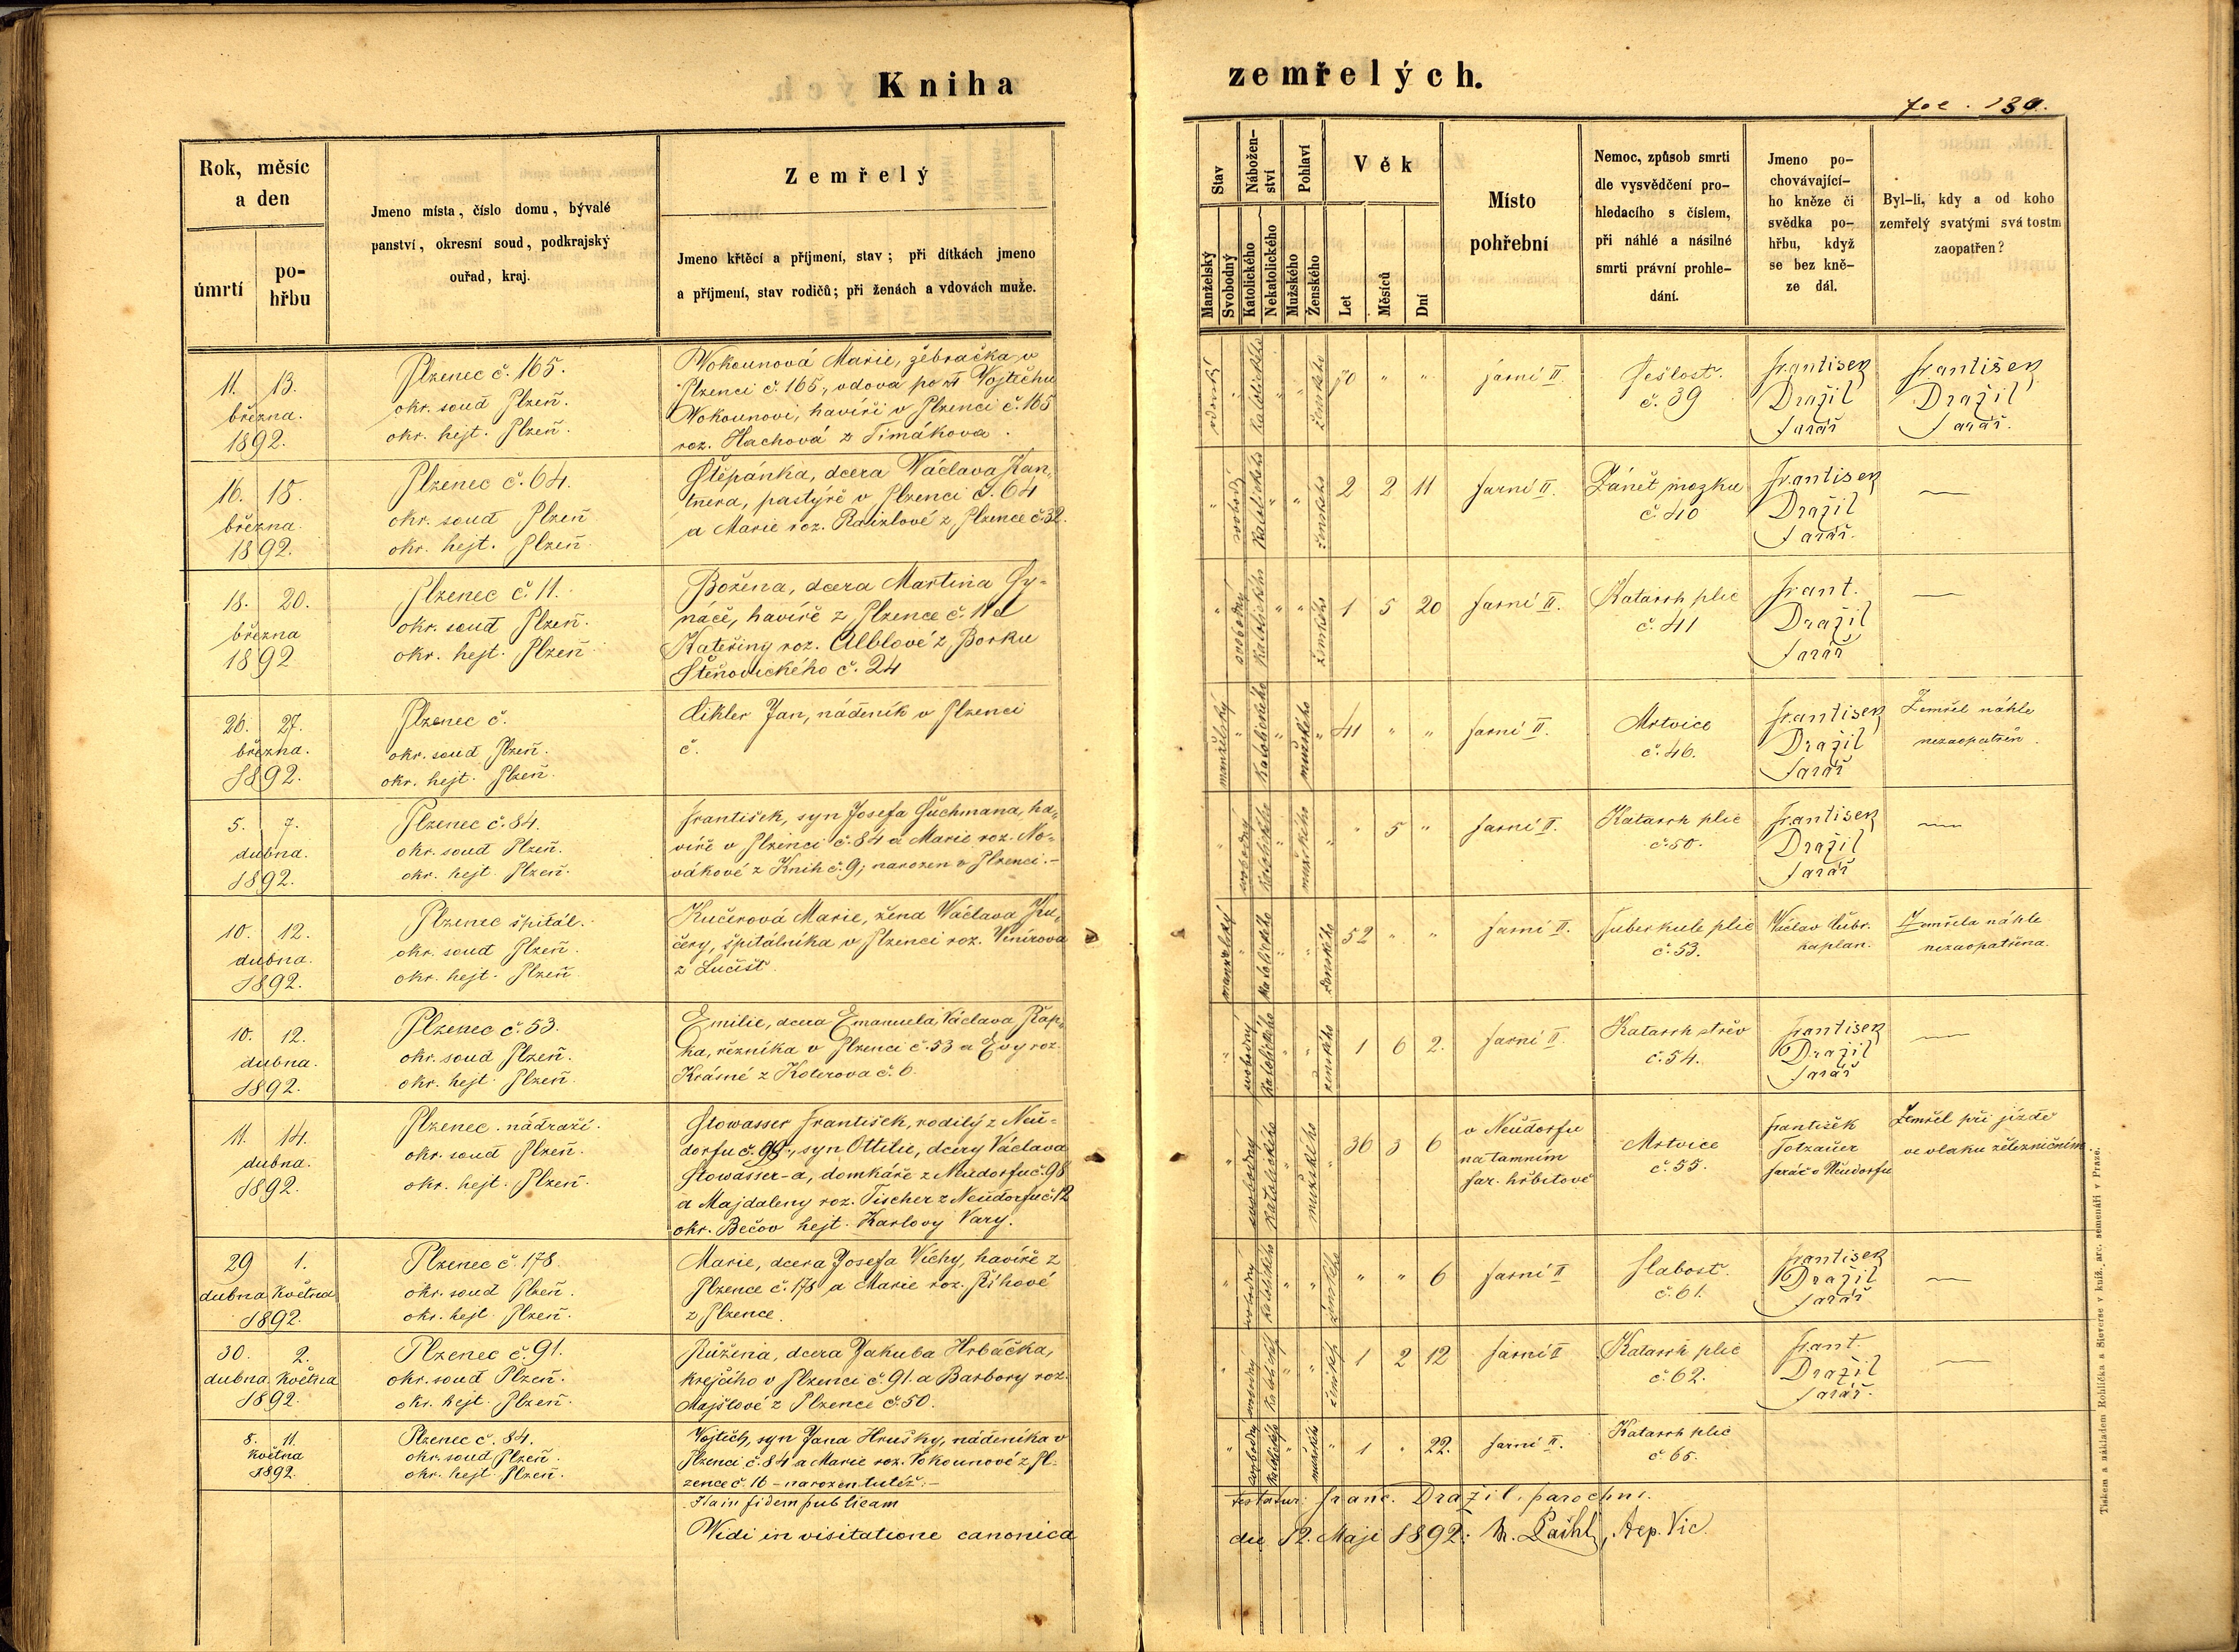 Kniha
zemřelých.
fol. 130.
Rok, měsíc
a den
úmrtí
po-
hřbu
Jmeno místa, číslo domu, bývalé
panství, okresní soud, podkrajský
ouřad, kraj.
Zemřelý
Jmeno křtěcí a příjmení, stav; při dítkách jmeno
a příjmení, stav rodičů; při ženách a vdovách muže.
Stav
Manželský
Svobodný
Nábožen-
ství
Katolického
Nekatolického
Pohlaví
Mužského
Ženského
Věk
Let
Měsíců
Dní
Místo
pohřební
Nemoc, způsob smrti
dle vysvědčení pro-
hledacího s číslem,
při náhlé a násilné
smrti právní prohle-
dání.
Jmeno po-
chovávající-
ho kněze či
svědka po-
hřbu, když
se bez kně-
ze dál.
Byl-li, kdy a od koho
zemřelý svatými svátostm
zaopatřen?
11. 13.
března.
1892.
Plzenec č. 165.
okr. soud Plzeň.
okr. hejt. Plzeň.
Wokounová Marie, žebračka v
Plzenci č. 165, vdova po † Vojtěchu
Wokounovi, havíři v Plzenci č. 165
roz. Hachová z Timákova.
katolického ženského 70 " " farní II. Sešlost.
č. 39
František
Dražil
farář
František
Dražil
farář.
16. 18.
března.
1892.
Plzenec č. 64.
okr. soud Plzeň
okr. hejt. Plzeň.
Štěpánka, dcera Václava Kan-
tnera, pastýře v Plzenci č. 64
a Marie roz. Raizlové z Plzence č. 32.
svobodný katolického ženského 2 2 11 farní II. Zánět mozku
č. 40
František
Dražil
farář.
—
18. 20.
března
1892
Plzenec č. 11.
okr. soud Plzeň.
okr. hejt. Plzeň
Božena, dcera Martina Sy-
náče, havíře z Plzence č. 11 a
Kateřiny roz. Alblové z Borku
Štěňovického č. 24
svobodný katolického ženského 1 5 20 farní II. Katarrh plic
č. 41
Frant.
Dražil
farář
—
26. 27.
března.
1892.
Plzenec č.
okr. soud Plzeň.
okr. hejt. Plzeň.
Cikler Jan, nádeník v Plzenci
č.
manželský katolického mužského 41 " " farní II. Mrtvice
č. 46.
František
Dražil
farář
Zemřel náhle
nezaopatřen.
5. 7.
dubna.
1892.
Plzenec č. 84.
okr. soud Plzeň.
okr. hejt. Plzeň.
František, syn Josefa Suchmana, ha-
víře v Plzenci č. 84 a Marie roz. No-
vákové z Knih č. 9; narozen v Plzenci.–
svobodný katolického mužského " 5 " farní II. Katarrh plic
č. 50.
František
Dražil
farář
—
10. 12.
dubna.
1892.
Plzenec špitál.
okr. soud Plzeň.
okr. hejt. Plzeň
Kučerová Marie, žena Václava Ku-
čery, špitálníka v Plzenci roz.
z Lučišť.
manželský katolického ženského 52 " " farní II. Tuberkule plic
č. 53.
Václav
kaplan.
Zemřela náhle
nezaopatřena.
10. 12.
dubna.
1892.
Plzenec č. 53.
okr. soud Plzeň.
okr. hejt. Plzeň.
Emilie, dcera Emanuela Václava Řap-
ka, řezníka v Plzenci č. 53 a Evy roz.
Krásné z Koterova č. 6.
svobodný katolického ženského 1 6 2. farní II. Katarrh střev
č. 54.
František
Dražil
farář
—
11. 14.
dubna.
1892.
Plzenec. nádraží.
okr. soud Plzeň.
okr. hejt. Plzeň.
Stowasser František, rodilý z Neu-
dorfu č. 99., syn Ottilie, dcery Václava
Stowasser-a, domkáře z Neudorfu č. 98
a Majdaleny roz. Tischer z Neudorfu č. 12
okr. Bečov hejt. Karlovy Vary.
svobodný katolického mužského 36 3 6 v Neudorfu
na tamním
far. hřbitově
Mrtvice
č. 55.
František
Totzauer
farář v Neudorfu
Zemřel při jízdě
ve vlaku železničním
29 1.
dubna Května
1892.
Plzenec č. 178.
okr. soud Plzeň.
okr. hejt. Plzeň.
Marie, dcera Josefa Víchy, havíře z
Plzence č. 178 a Marie roz. Říhové
z Plzence.
svobodný katolického ženského " " 6 farní II Slabost.
č. 61.
František
Dražil
farář
—
30. 2.
dubna Května
1892.
Plzenec č. 91.
okr. soud Plzeň.
okr. hejt. Plzeň.
Růžena, dcera Jakuba Hrbáčka,
krejčího v Plzenci č. 91. a Barbory roz.
Majštové z Plzence č. 50.
1 2 12 farní II Katarrh plic
č. 62.
Frant.
Dražil
farář.
—
8. 11.
Května
1892.
Plzenec č. 84.
okr. soud Plzeň.
okr. hejt. Plzeň.
Vojtěch, syn Jana Hrušky, nádeníka v
Plzenci č. 84 a Marie roz. Vokounové z Pl-
zence č. 16 – narozen tutéž.–
svobodný katolického mužského 1 " 22. farní II. Katarrh plic
č. 65.
Ita in fidem publicam
testatur: Franc. Dražil, parochus.
Vidi in visitatione canonica
die 12. Maji 1892:
Tiskem a nákladem Rohlíčka a Sieverse v kníž. arc. semenáři v Praze.